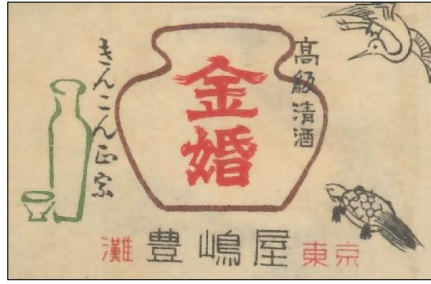 高級清酒
金婚
きんこん正宗
灘 豊嶋屋 東京